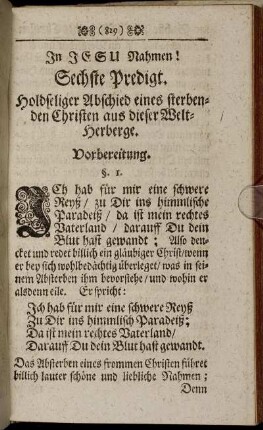 (829)
In JESU Nahmen!
Sechste Predigt.
Holdseliger Abschied eines sterben-
den Christen aus dieser Welt-
Herberge.
Vorbereitung.
§. 1.
ICh hab für mir eine schwere
Reyß / zu Dir ins himmlische
Paradeiß / da ist mein rechtes
Vaterland / darauff Du dein
Blut hast gewandt; Also den-
cket und redet billich ein gläubiger Christ / wenn
er bey sich wohlbedächtig überleget / was in sei-
nem Absterben ihm bevorstehe / und wohin er
alsdenn eile. Er spricht:
Ich hab für mir eine schwere Reyß
Zu Dir ins himmlisch Paradeiß;
Da ist mein rechtes Vaterland /
Darauff Du dein Blut hast gewandt.
Das Absterben eines frommen Christen führet
billich lauter schöne und liebliche Nahmen;
Denn